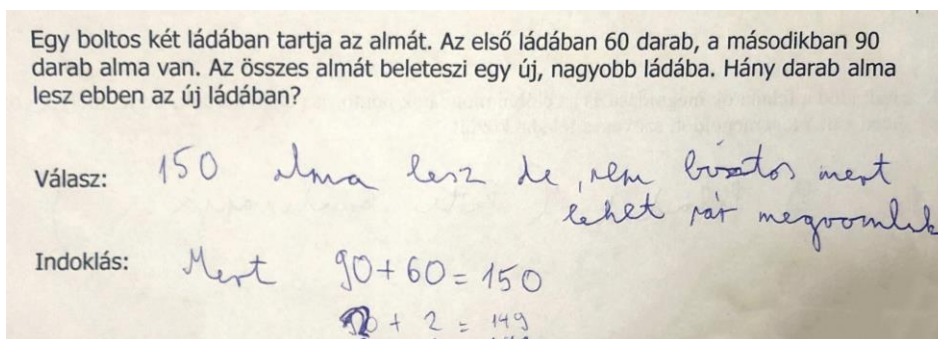 Egy boltos két ládában tartja az almát. Az első ládában 60 darab, a másodikban 90
darab alma van. Az összes almát beleteszi egy új, nagyobb ládába. Hány darab alma
lesz ebben az új ládában?
Válasz: 150 alma lesz de, nem bisztos mert
lehet pár megromlik
Indoklás: Mert 90+60=150
+ 2 = 149